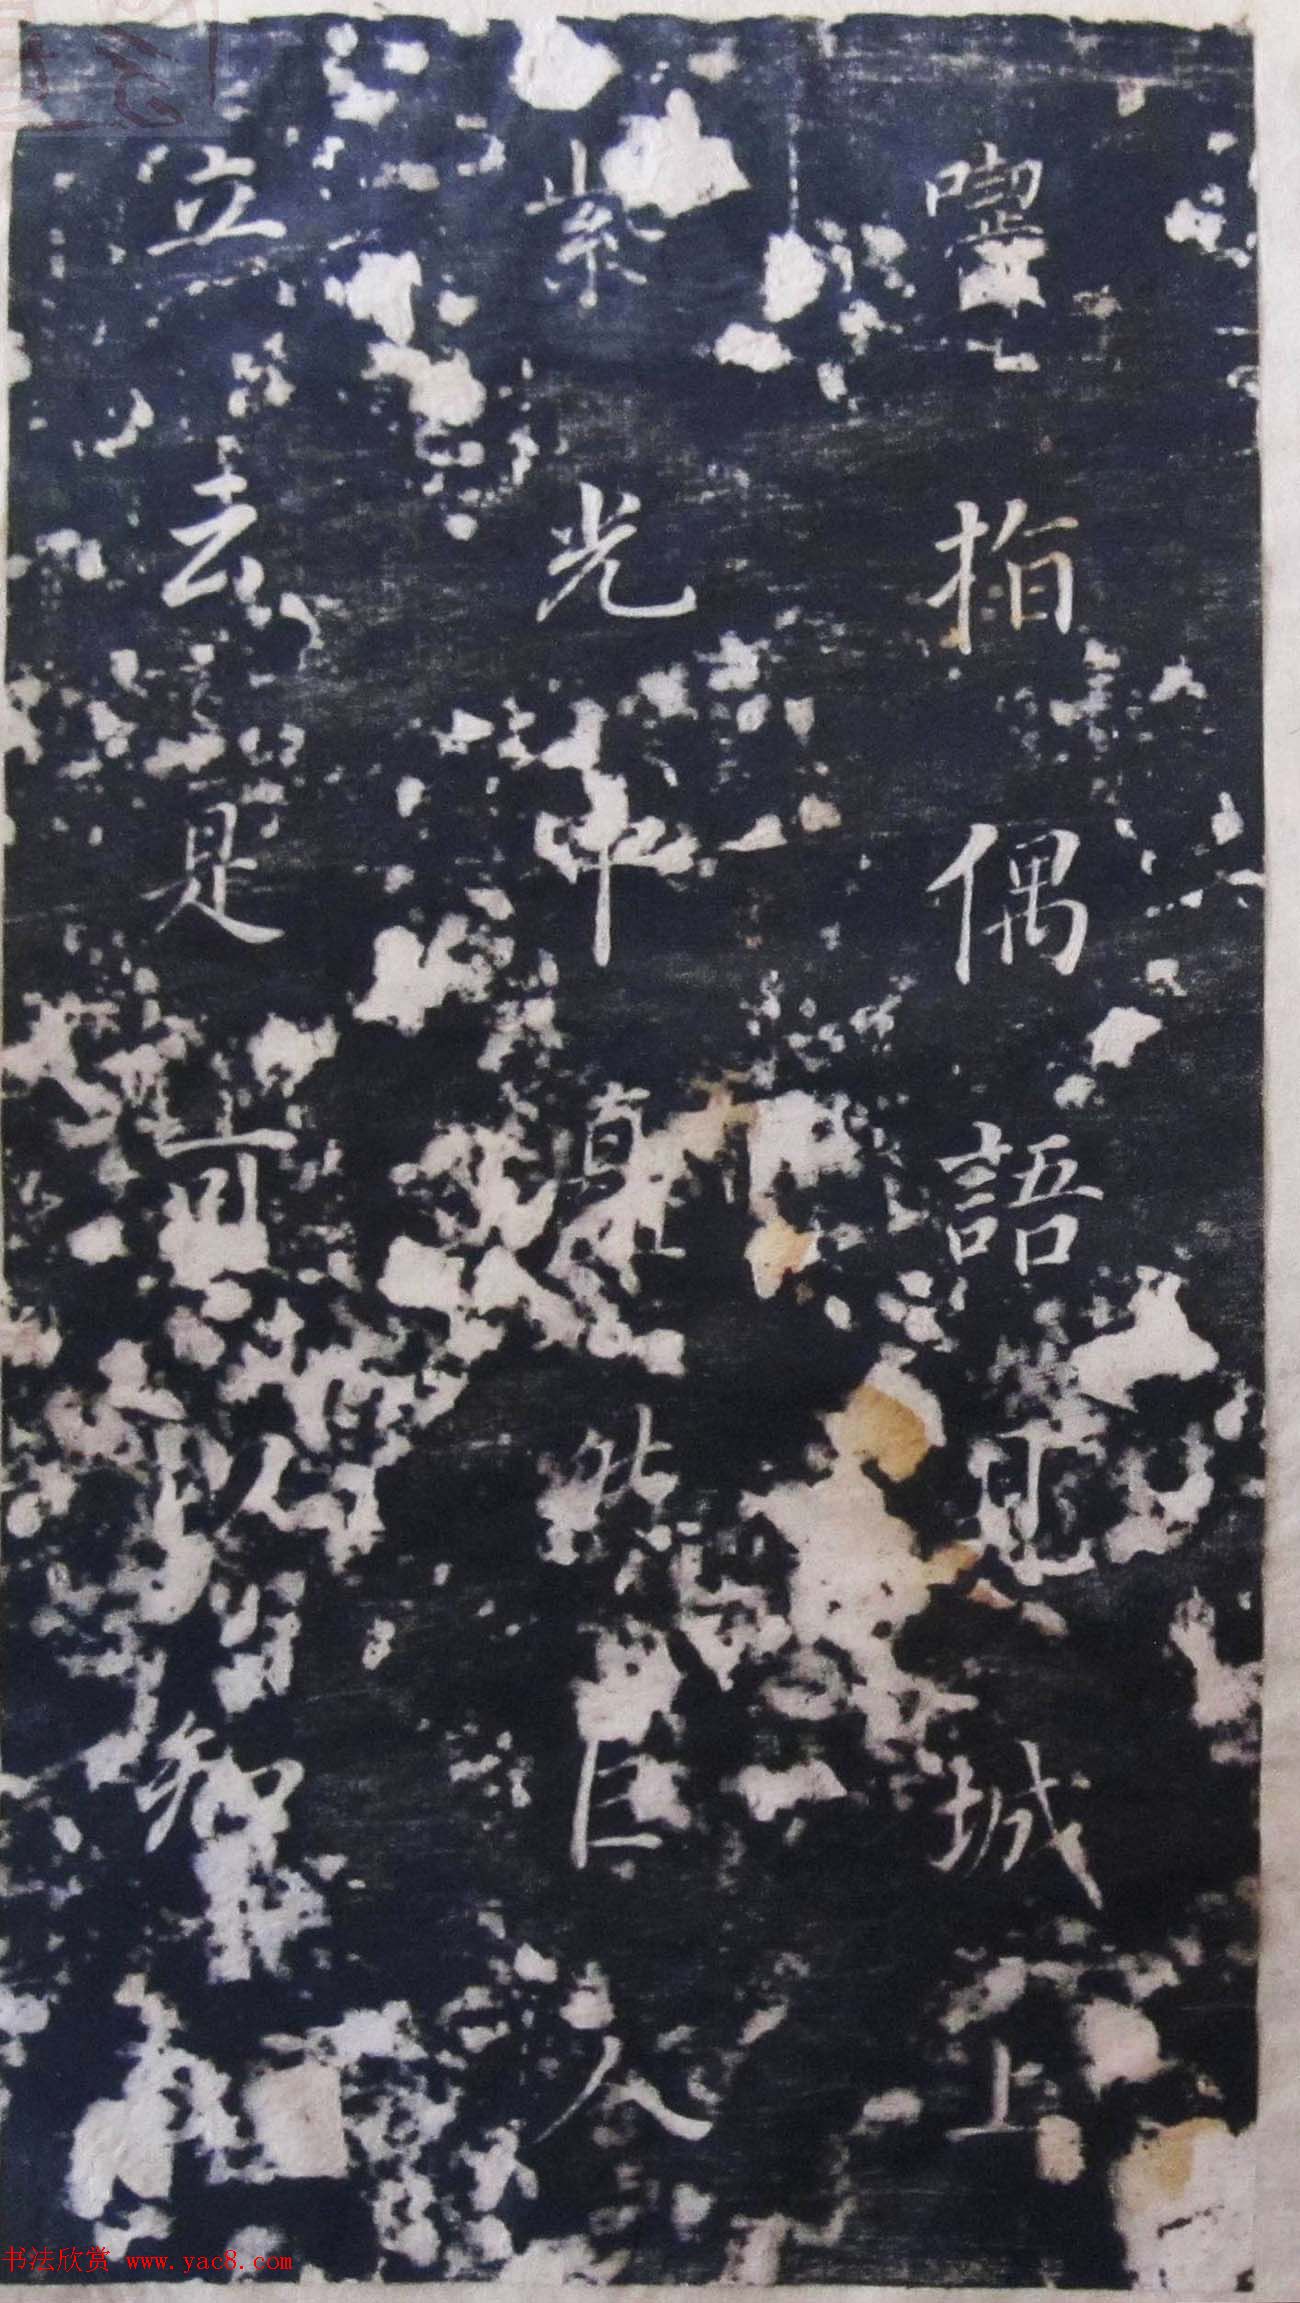 囓指偶語見城上
紫光中真然巨人
立去是可以知
书法欣赏 www.yac8.com